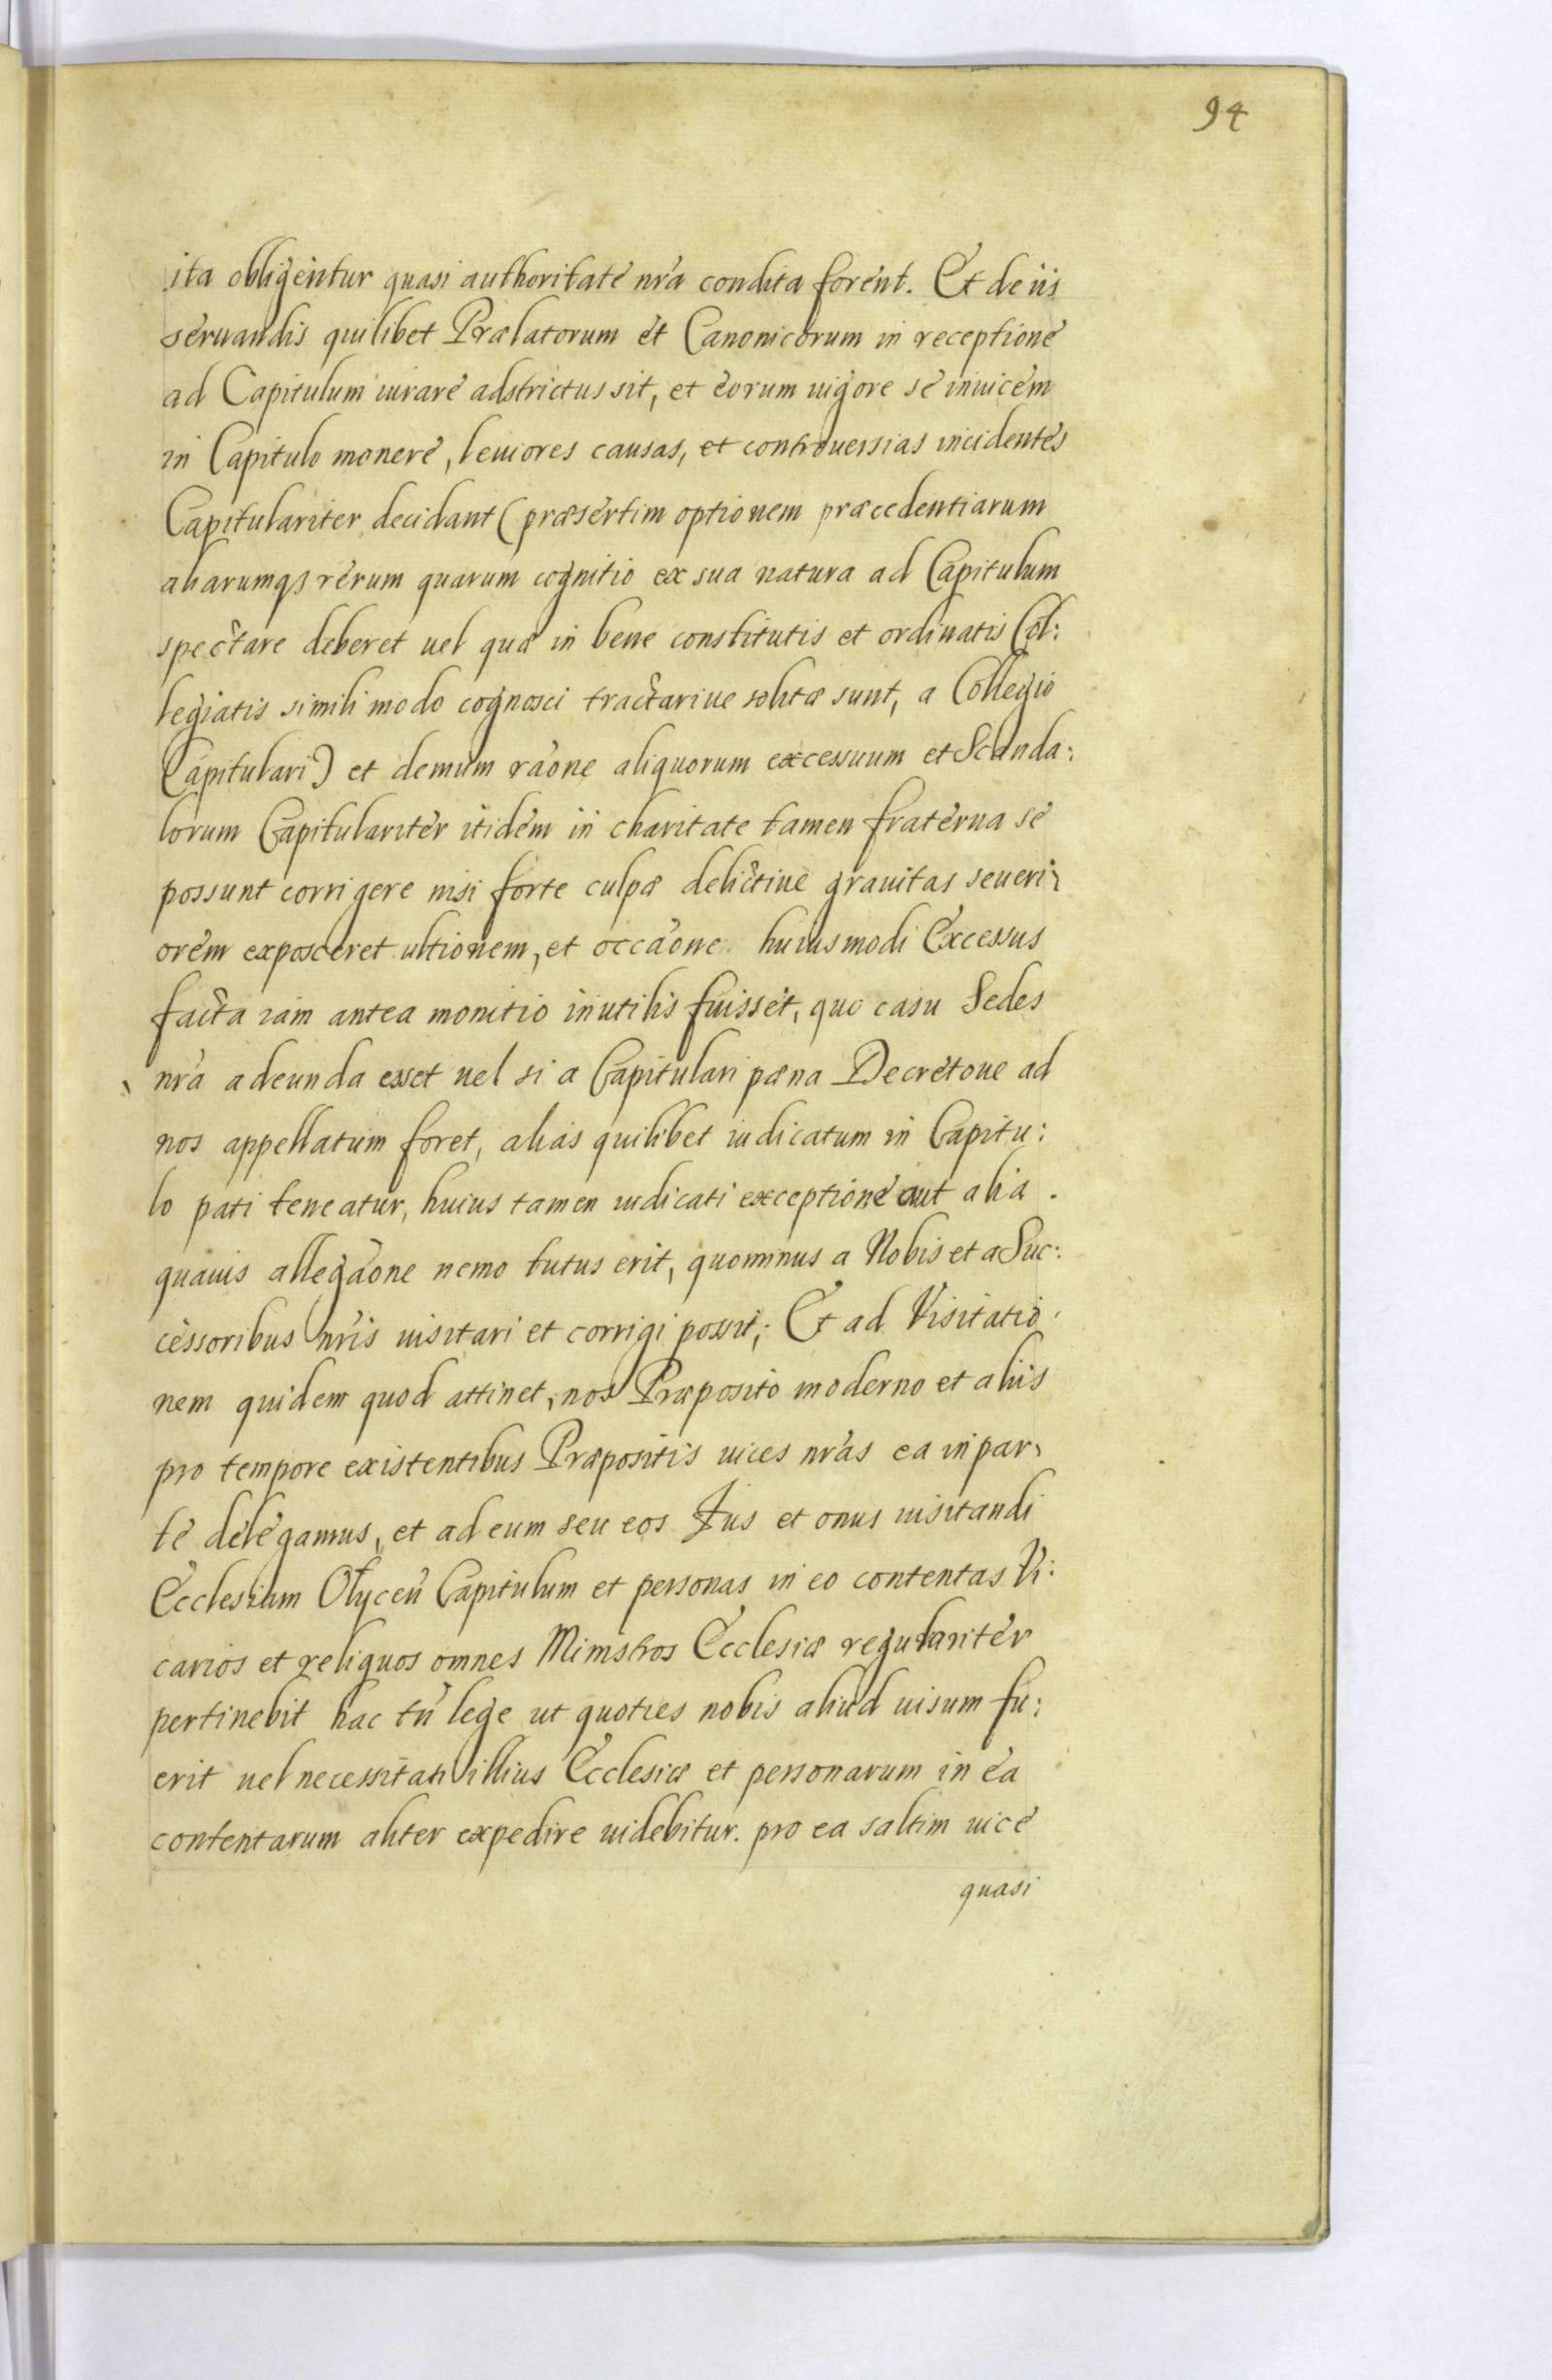 94
ita obligentur quasi authoritate nrã condita forent. Et de iis
seruandis quilibet Prælatorum et Canonicorum in receptione
ad Capitulum iurare adstrictus sit, et eorum uigore se inuicem
in Capitulo monere, leuiores causas, et controuersias incidentes
Capitulariter decidant (præsertim optionem præcedentiarum
aliarumqs rerum quarum cognitio ex sua natura ad Capitulum
spectare deberet uel quæ in bene constitutis et ordinatis Col:
legiatis simili modo cognosci tractariue solitæ sunt, a Collegio
Capitulari) et demum raõne aliquorum excessuum et Scanda:
lorum Capitulariter itidem in charitate tamen fraterna se
possunt corrigere nisi forte culpæ delictiue grauitas seueri-
orem exposceret ultionem, et occaõne huiusmodi Excessus
facta iam antea monitio inutilis fuisset, quo casu Sedes
nrã adeunda esset uel si a Capitulari pæna Decretoue ad
nos appellatum foret, alias quilibet iudicatum in Capitu:
lo pati teneatur, huius tamen iudicati exceptione aut alia.
quauis allegaõne nemo tutus erit, quominus a Nobis et a Suc:
cessoribus nrĩs uisitari et corrigi possit; Et ad Visitatio
nem quidem quod attinet, nos Præposito moderno et aliis
pro tempore existentibus Præpositis uices nrãs ea in par-
te delegamus, et ad eum seu eos Ius et onus uisitandi
Ecclesiam Olyceñ Capitulum et personas in eo contentas Vi:
carios et reliquos omnes Ministros Ecclesiæ regulariter
pertinebit hac tñ lege ut quoties nobis aliud uisum fu:
erit uel necessitati illius Ecclesiæ et personarum in ea
contentarum aliter expedire uidebitur. pro ea saltim uice
quasi